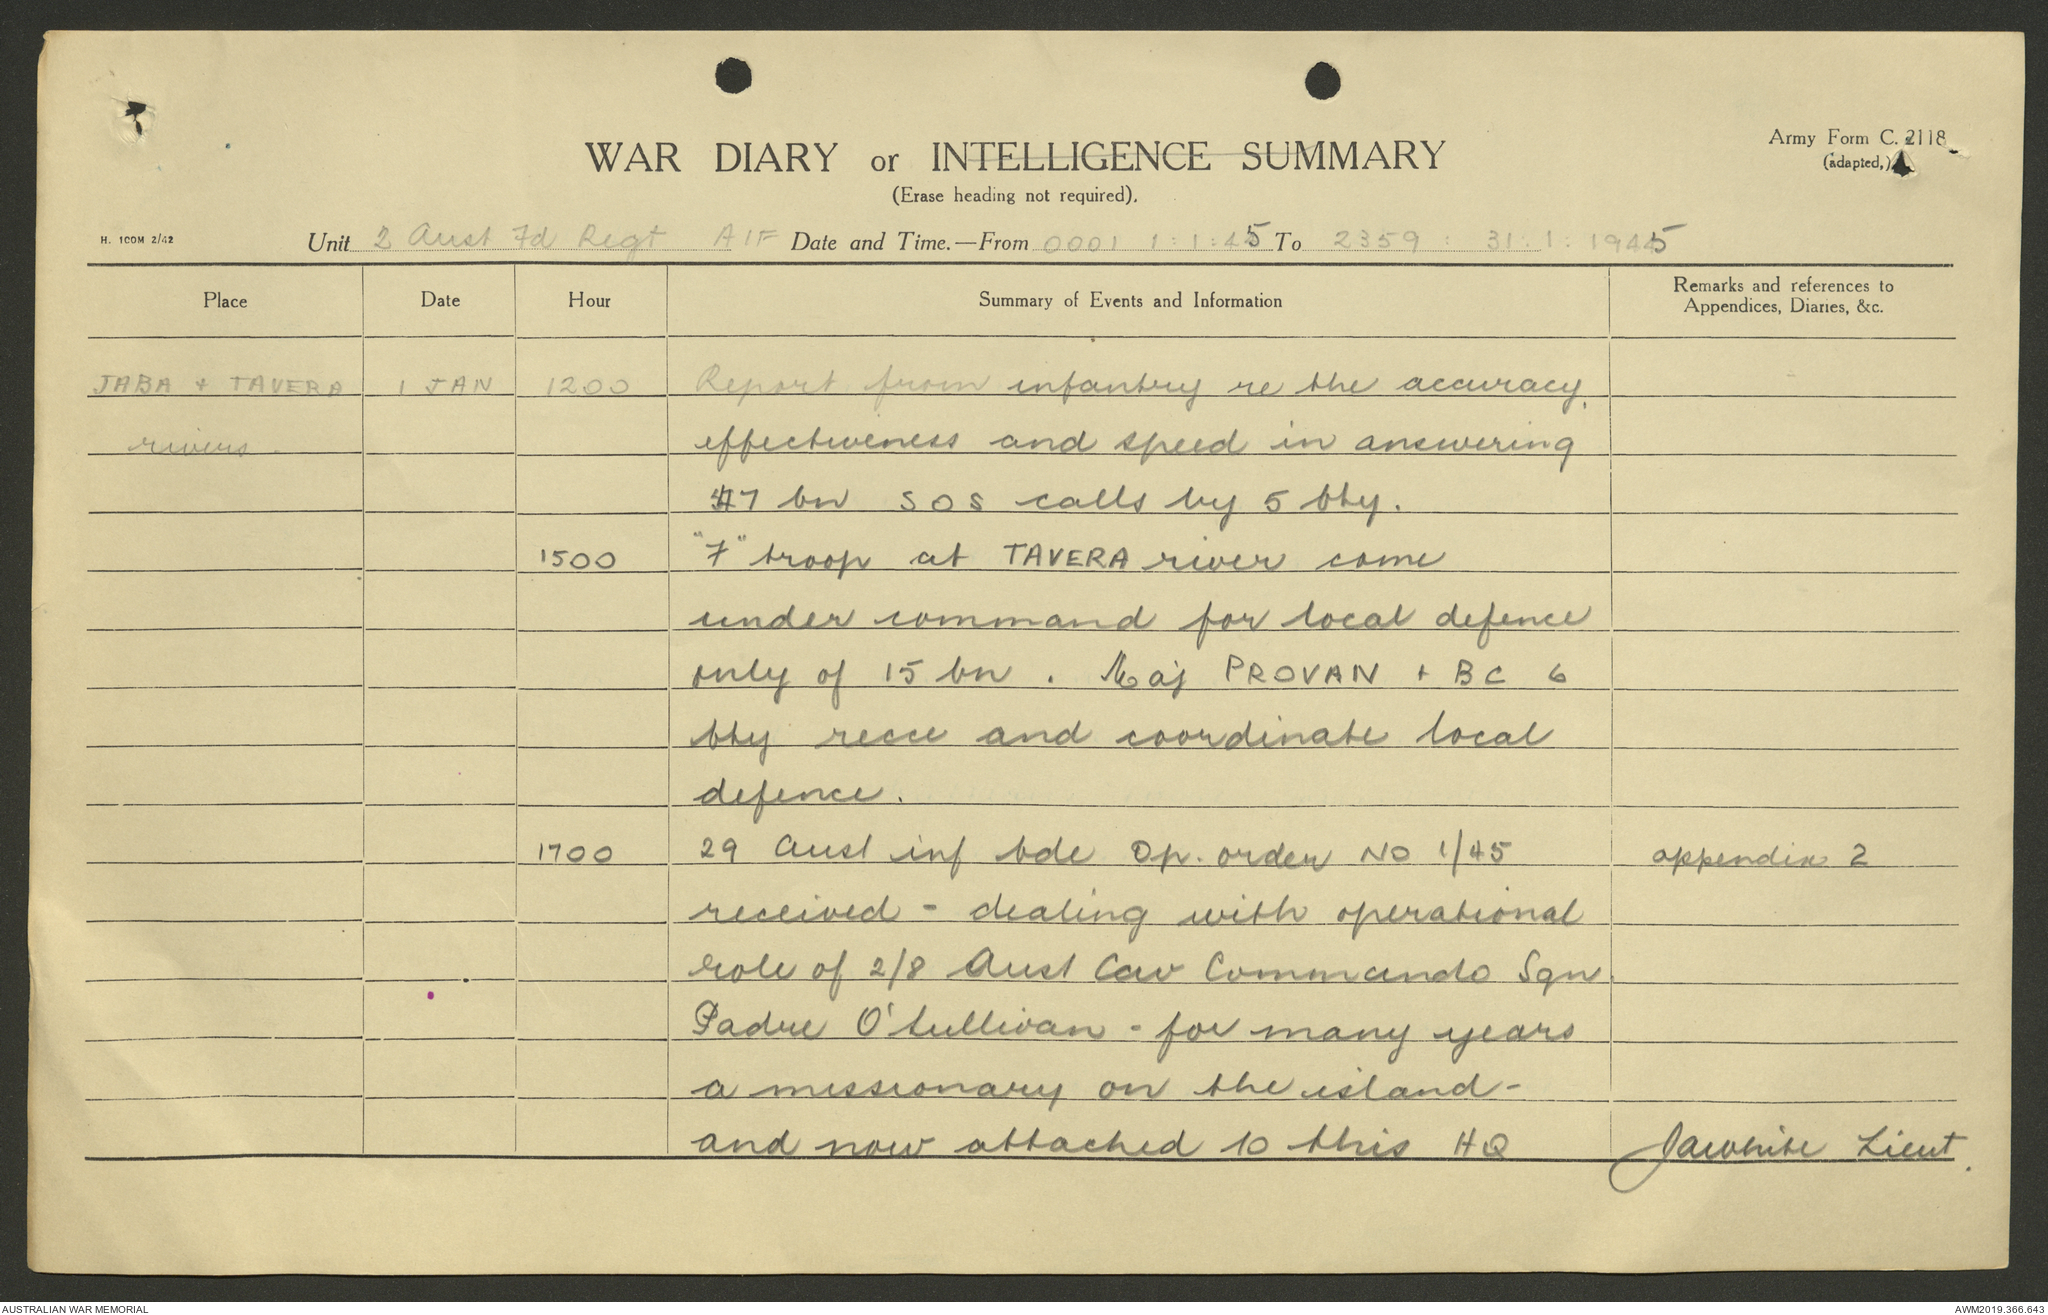 Army Form C. 2118
WAR DIARY or INTELLIGENCE SUMMARY
(adapted,)
(Erase heading not required).
H. 1COM 2/42
Unit 2 Aust Fd Regt AIF Date and Time.—From 0001 1:1:45 To 2359: 31:1:1945
Place Date Hour Summary of Events and Information Remarks and references to
Appendices, Diaries, &c.
JABA + TAVERA 1 JAN 1200 Report from infantry re the accuracy,
rivers. effectiveness and speed in answering
47 bn SOS calls by 5 bty.
1500 "F" troop at TAVERA river come
under command for local defence
only of 15 bn. Maj PROVAN + BC 6
bty recce and coordinate local
defence.
1700 29 Aust inf bde Op. order NO 1/45 appendix 2
received - dealing with operational
role of 2/8 Aust Cav Commando Sqn.
Padre O'Sullivan - for many years
a missionary on the island -
and now attached to this HQ JAWhite Lieut.
AUSTRALIAN WAR MEMORIAL AWM2019.366.643